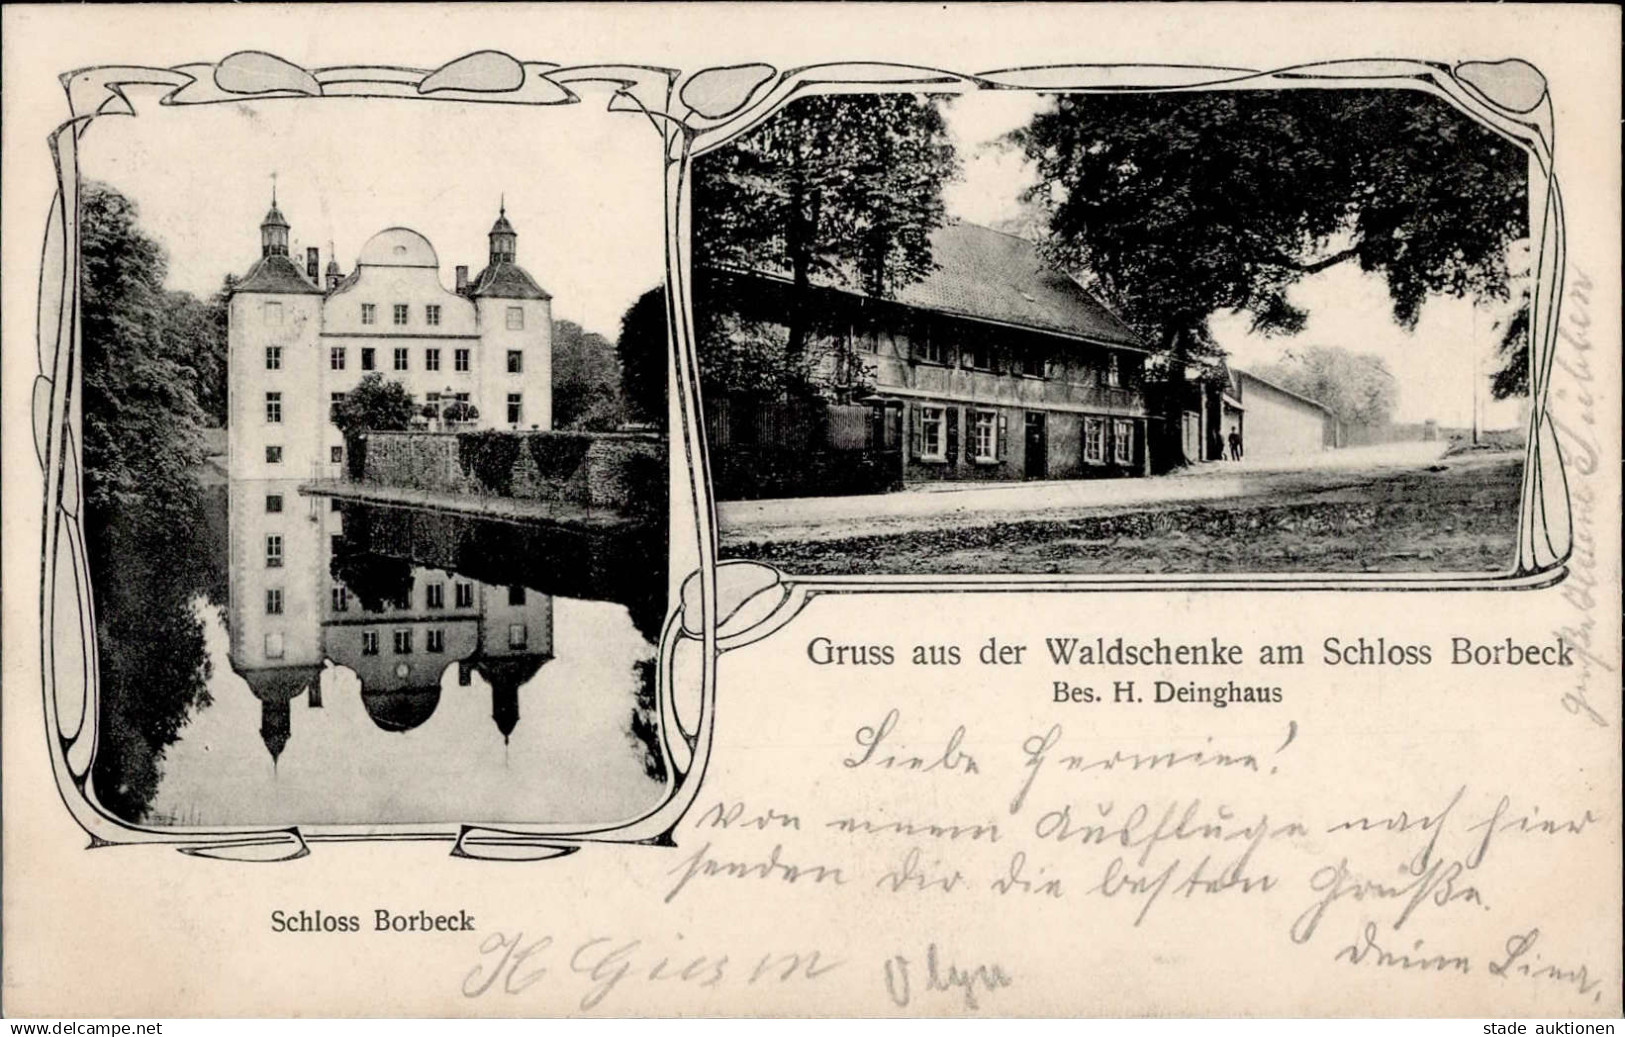 Gruss aus der Waldschenke am Schloss Borbeck
Bes. H. Deinghaus
Liebe Hermine!
Von einem Ausfluge nach hier
senden dir die besten Grüße.
Deine Lina,
Schloss Borbeck
H Giesen
www.delcampe.net
stade auktionen